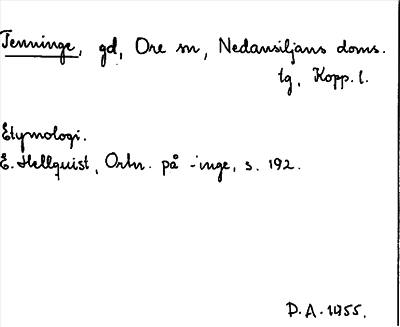 Tenninge, gd, Ore sn, Nedansiljans doms.
tg, Kopp. l.
Etymologi.
E. Hellquist, Ortn. på -inge, s. 192.
D.A. 1955.